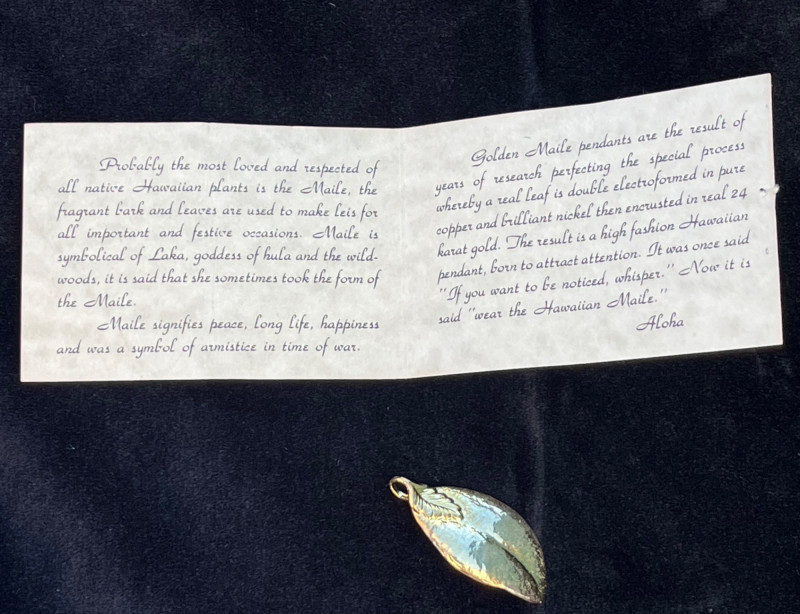 Probably the most loved and respected of
all native Hawaiian plants is the Maile, the
fragrant bark and leaves are used to make leis for
all important and festive occasions. Maile is
symbolical of Laka, goddess of hula and the wild-
woods, it is said that she sometimes took the form of
the Maile.
Maile signifies peace, long life, happiness
and was a symbol of armistice in time of war.
Golden Maile pendants are the result of
years of research perfecting the special process
whereby a real leaf is double electroformed in pure
copper and brilliant nickel then encrusted in real 24
karat gold. The result is a high fashion Hawaiian
pendant, born to attract attention. It was once said
"If you want to be noticed, whisper." Now it is
said "wear the Hawaiian Maile."
Aloha